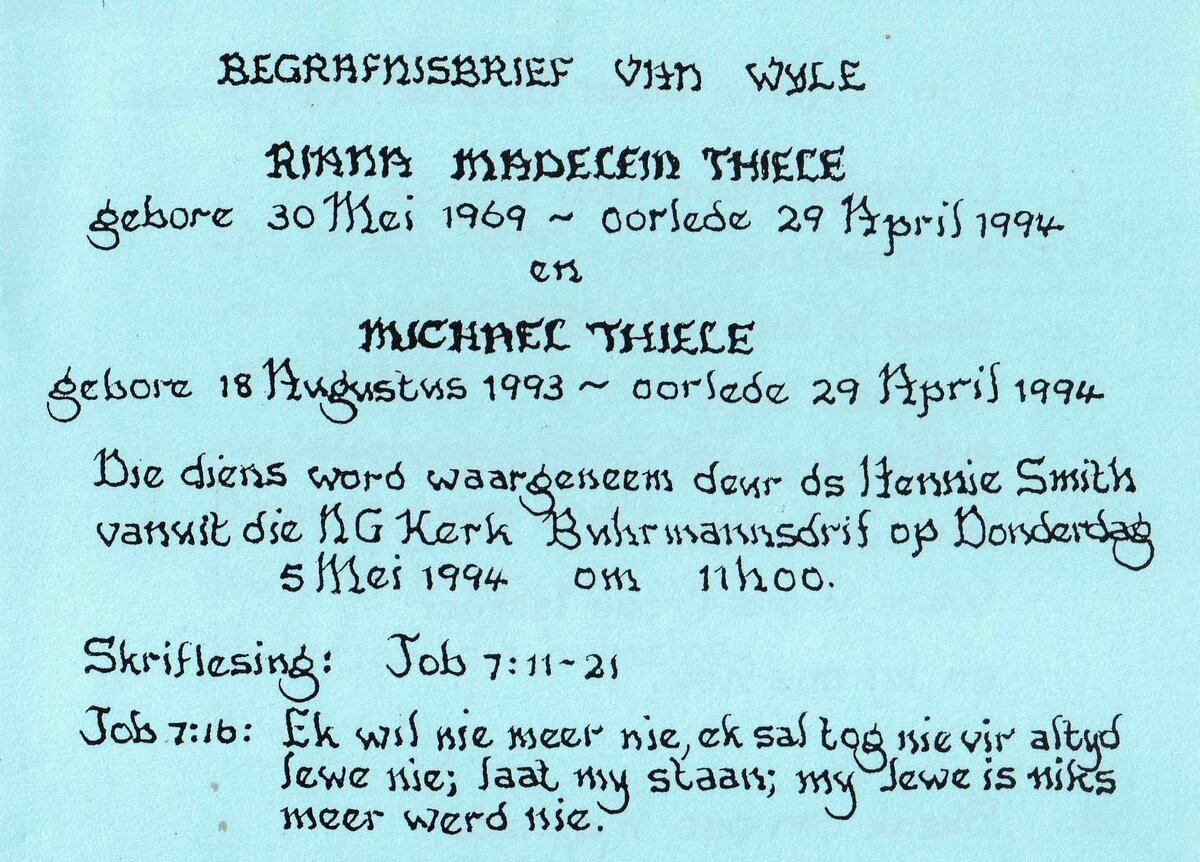 BEGRAFNISBRIEF VAN WYLE
RIANA MADELEIN THIELE
gebore 30 Mei 1969 ~ oorlede 29 April 1994
en
MICHAEL THIELE
gebore 18 Augustus 1993 ~ oorlede 29 April 1994
Die diens word waargeneem deur ds Hennie Smith
vanuit die NG Kerk Buhrmannsdrif op Donderdag
5 Mei 1994 om 11h00.
Skriflesing: Job 7:11~21
Job 7:16: Ek wil nie meer nie, ek sal tog nie vir altyd
lewe nie; laat my staan; my lewe is niks
meer werd nie.